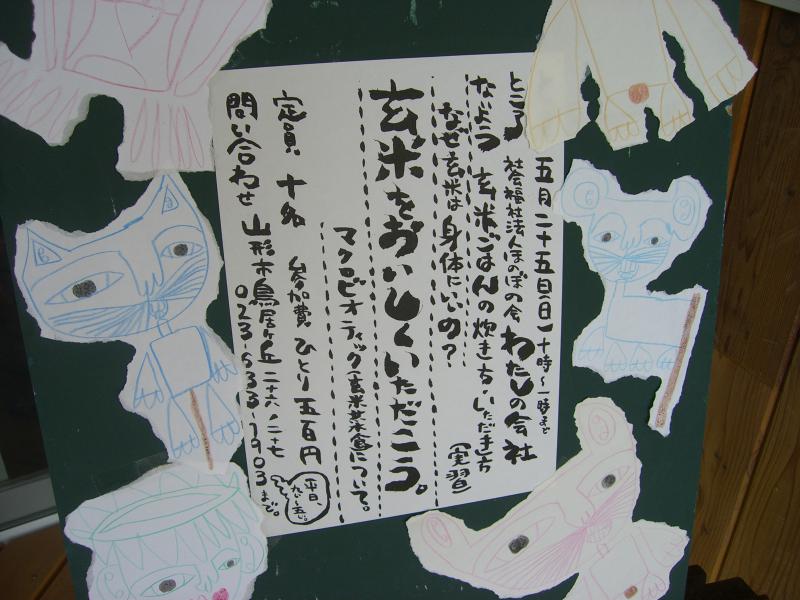 五月二十五日(日)十時〜一時まで
ところ 社会福祉法人ほのぼの会 わたしの会社
なぜ玄米は身体にいいの?
玄米ごはんの炊き方・いただき方[実習]
玄米をおいしくいただこう。
マクロビオティック(玄米菜食)について。
定員 十名 参加費 ひとり五百円
問い合わせ 山形市鳥居ヶ丘二十六ノ二十七
023・633・1903まで。
平日、九〜五。